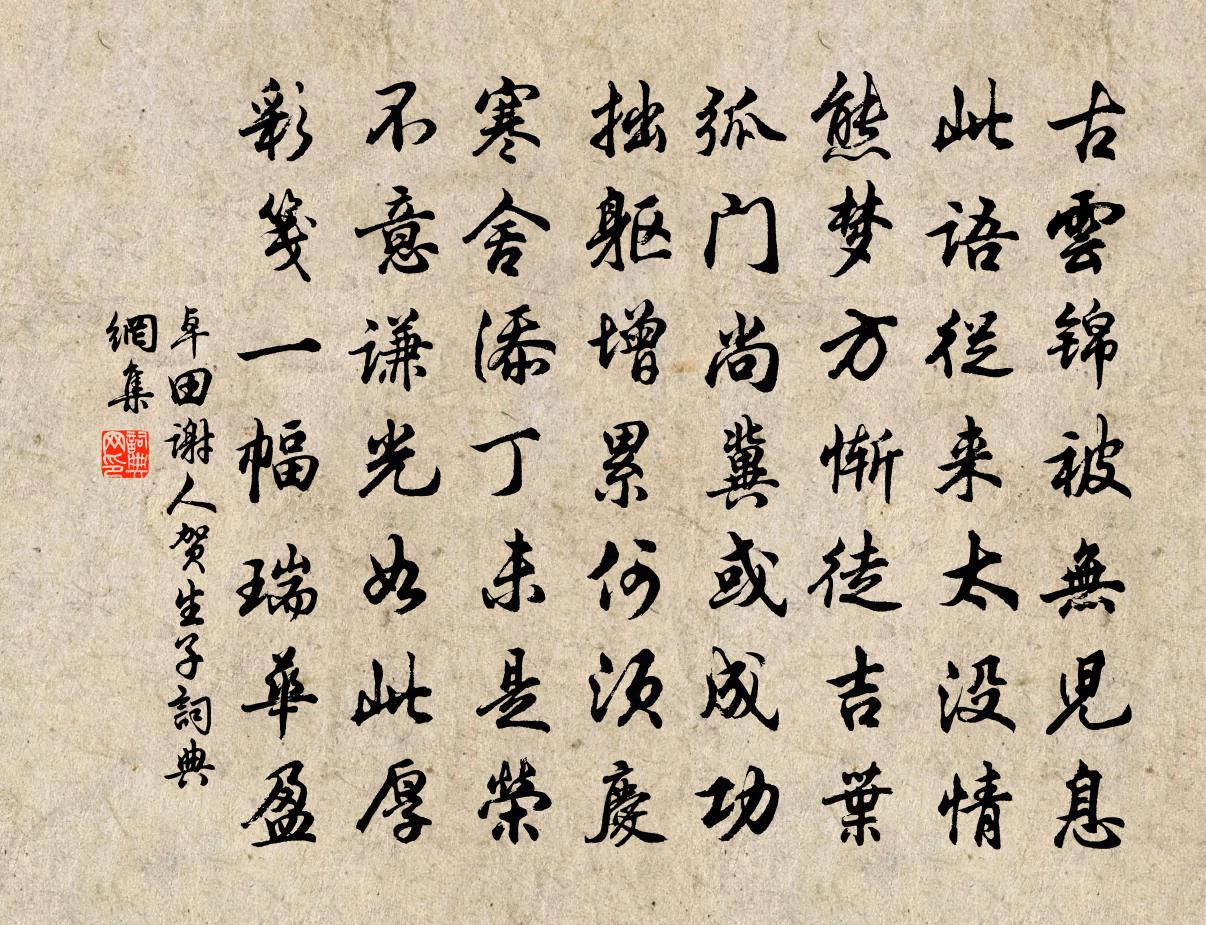 古雲锦被無児息
此语從来太没情
熊梦方惭徒吉葉
弧门尚冀或成功
拙躯增累何须慶
寒舍添丁未是榮
不意谦光如此厚
彩笺一幅瑞華盈
卓田谢人贺生子詞典
網集
詞典网印